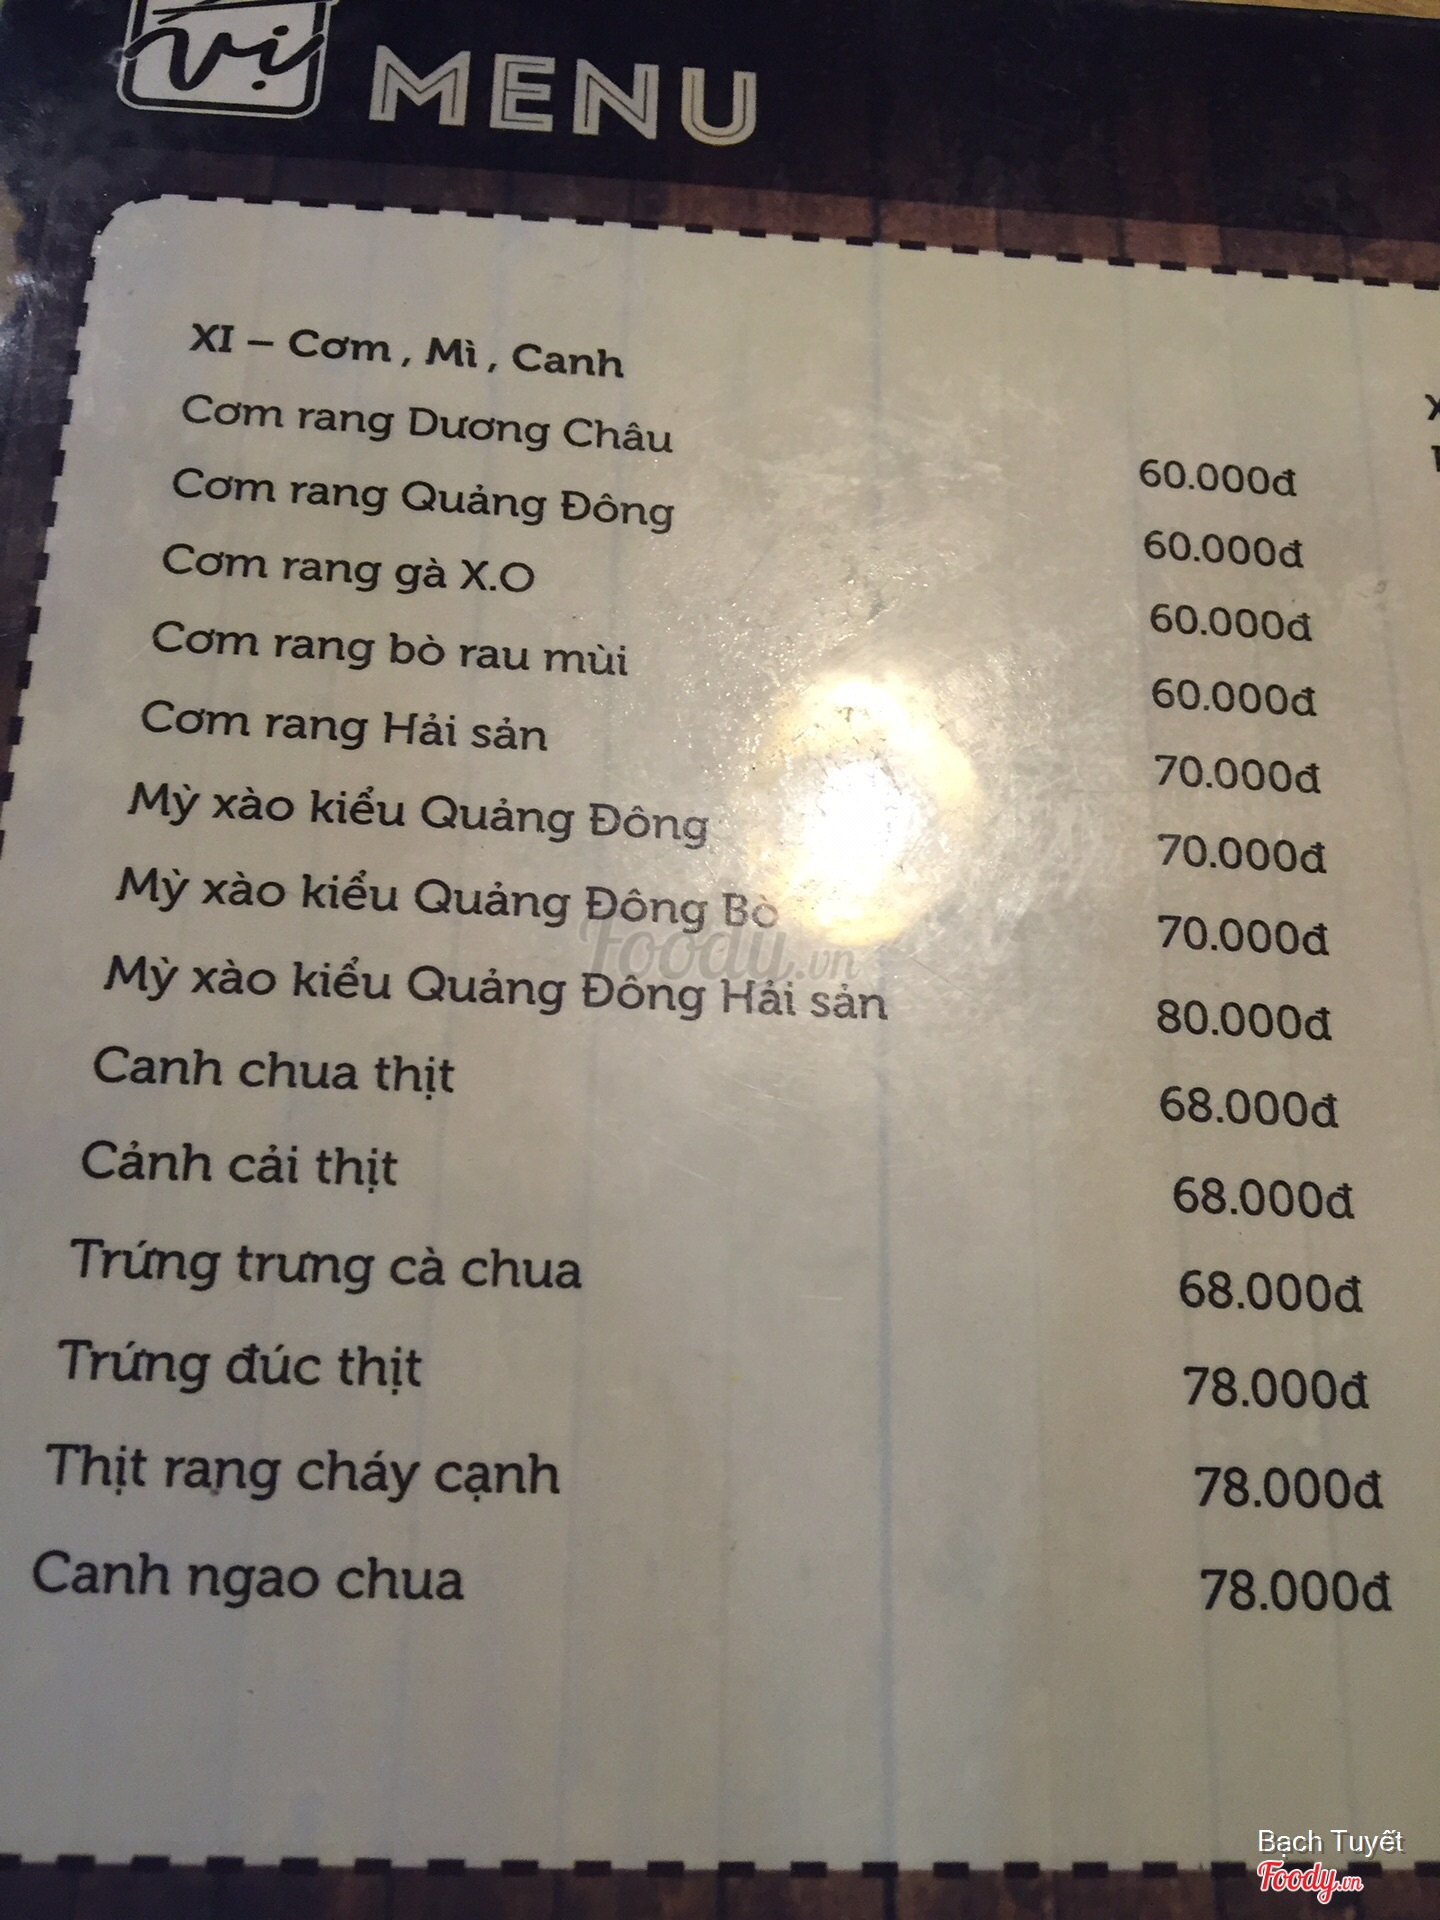 Vị MENU
XI – Cơm , Mì , Canh
Cơm rang Dương Châu 60.000đ
Cơm rang Quảng Đông 60.000đ
Cơm rang gà X.O 60.000đ
Cơm rang bò rau mùi 60.000đ
Cơm rang Hải sản 70.000đ
Mỳ xào kiểu Quảng Đông 70.000đ
Mỳ xào kiểu Quảng Đông Bò 70.000đ
Mỳ xào kiểu Quảng Đông Hải sản 80.000đ
Canh chua thịt 68.000đ
Cảnh cải thịt 68.000đ
Trứng trưng cà chua 68.000đ
Trứng đúc thịt 78.000đ
Thịt rang cháy cạnh 78.000đ
Canh ngao chua 78.000đ
Foody.vn
Bạch Tuyết
Foody.vn